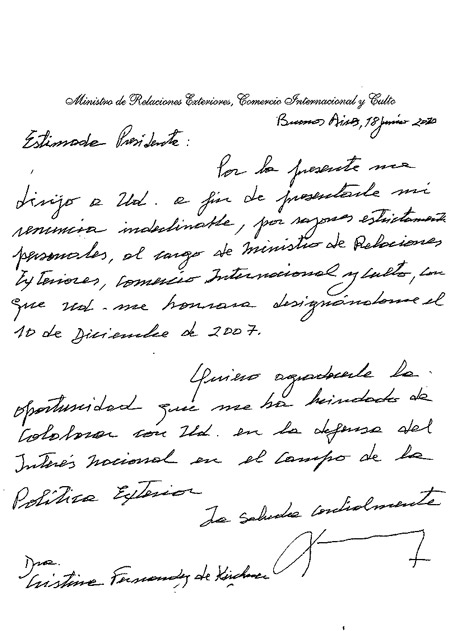 Ministro de Relaciones Exteriores, Comercio Internacional y Culto
Buenos Aires, 18 junio 2010
Estimada Presidenta:
Por la presente me
dirijo a Ud. a fin de presentarle mi
renuncia indeclinable, por razones estrictamente
personales, al cargo de Ministro de Relaciones
Exteriores, Comercio Internacional y Culto, con
que Ud. me honrara designándome el
10 de Diciembre de 2007.
Quiero agradecerle la
oportunidad que me ha brindado de
colaborar con Ud. en la defensa del
Interés Nacional en el campo de la
Política Exterior
La saluda cordialmente
Dra.
Cristina Fernandez de Kirchner